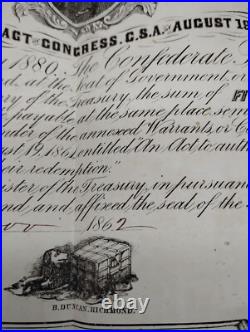 ACT OF CONGRESS, C.S.A. AUGUST 19
1880. The Confederate S
at the Seal of Government, or
y of the Treasury, the sum of FI
payable at the same place sem
nder of the annexed Warrants or C
ust 19, 1861, entitled "An Act to auth
eir redemption."
ister of the Treasury, in pursuan
nd, and affixed the seal of the
Nov 1862
B. DUNCAN, RICHMOND.